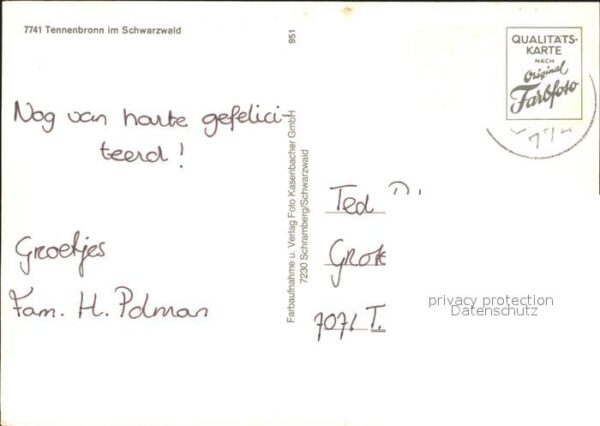 7741 Tennenbronn im Schwarzwald
951
QUALITÄTS-
KARTE
NACH
Original
Farbfoto
Nog van harte gefelici-
teerd!
Groetjes
Fam. H. Polman
Farbaufnahme u. Verlag Foto Kasenbacher GmbH
7230 Schramberg/Schwarzwald
Ted
Grote
7071 T.
privacy protection
Datenschutz